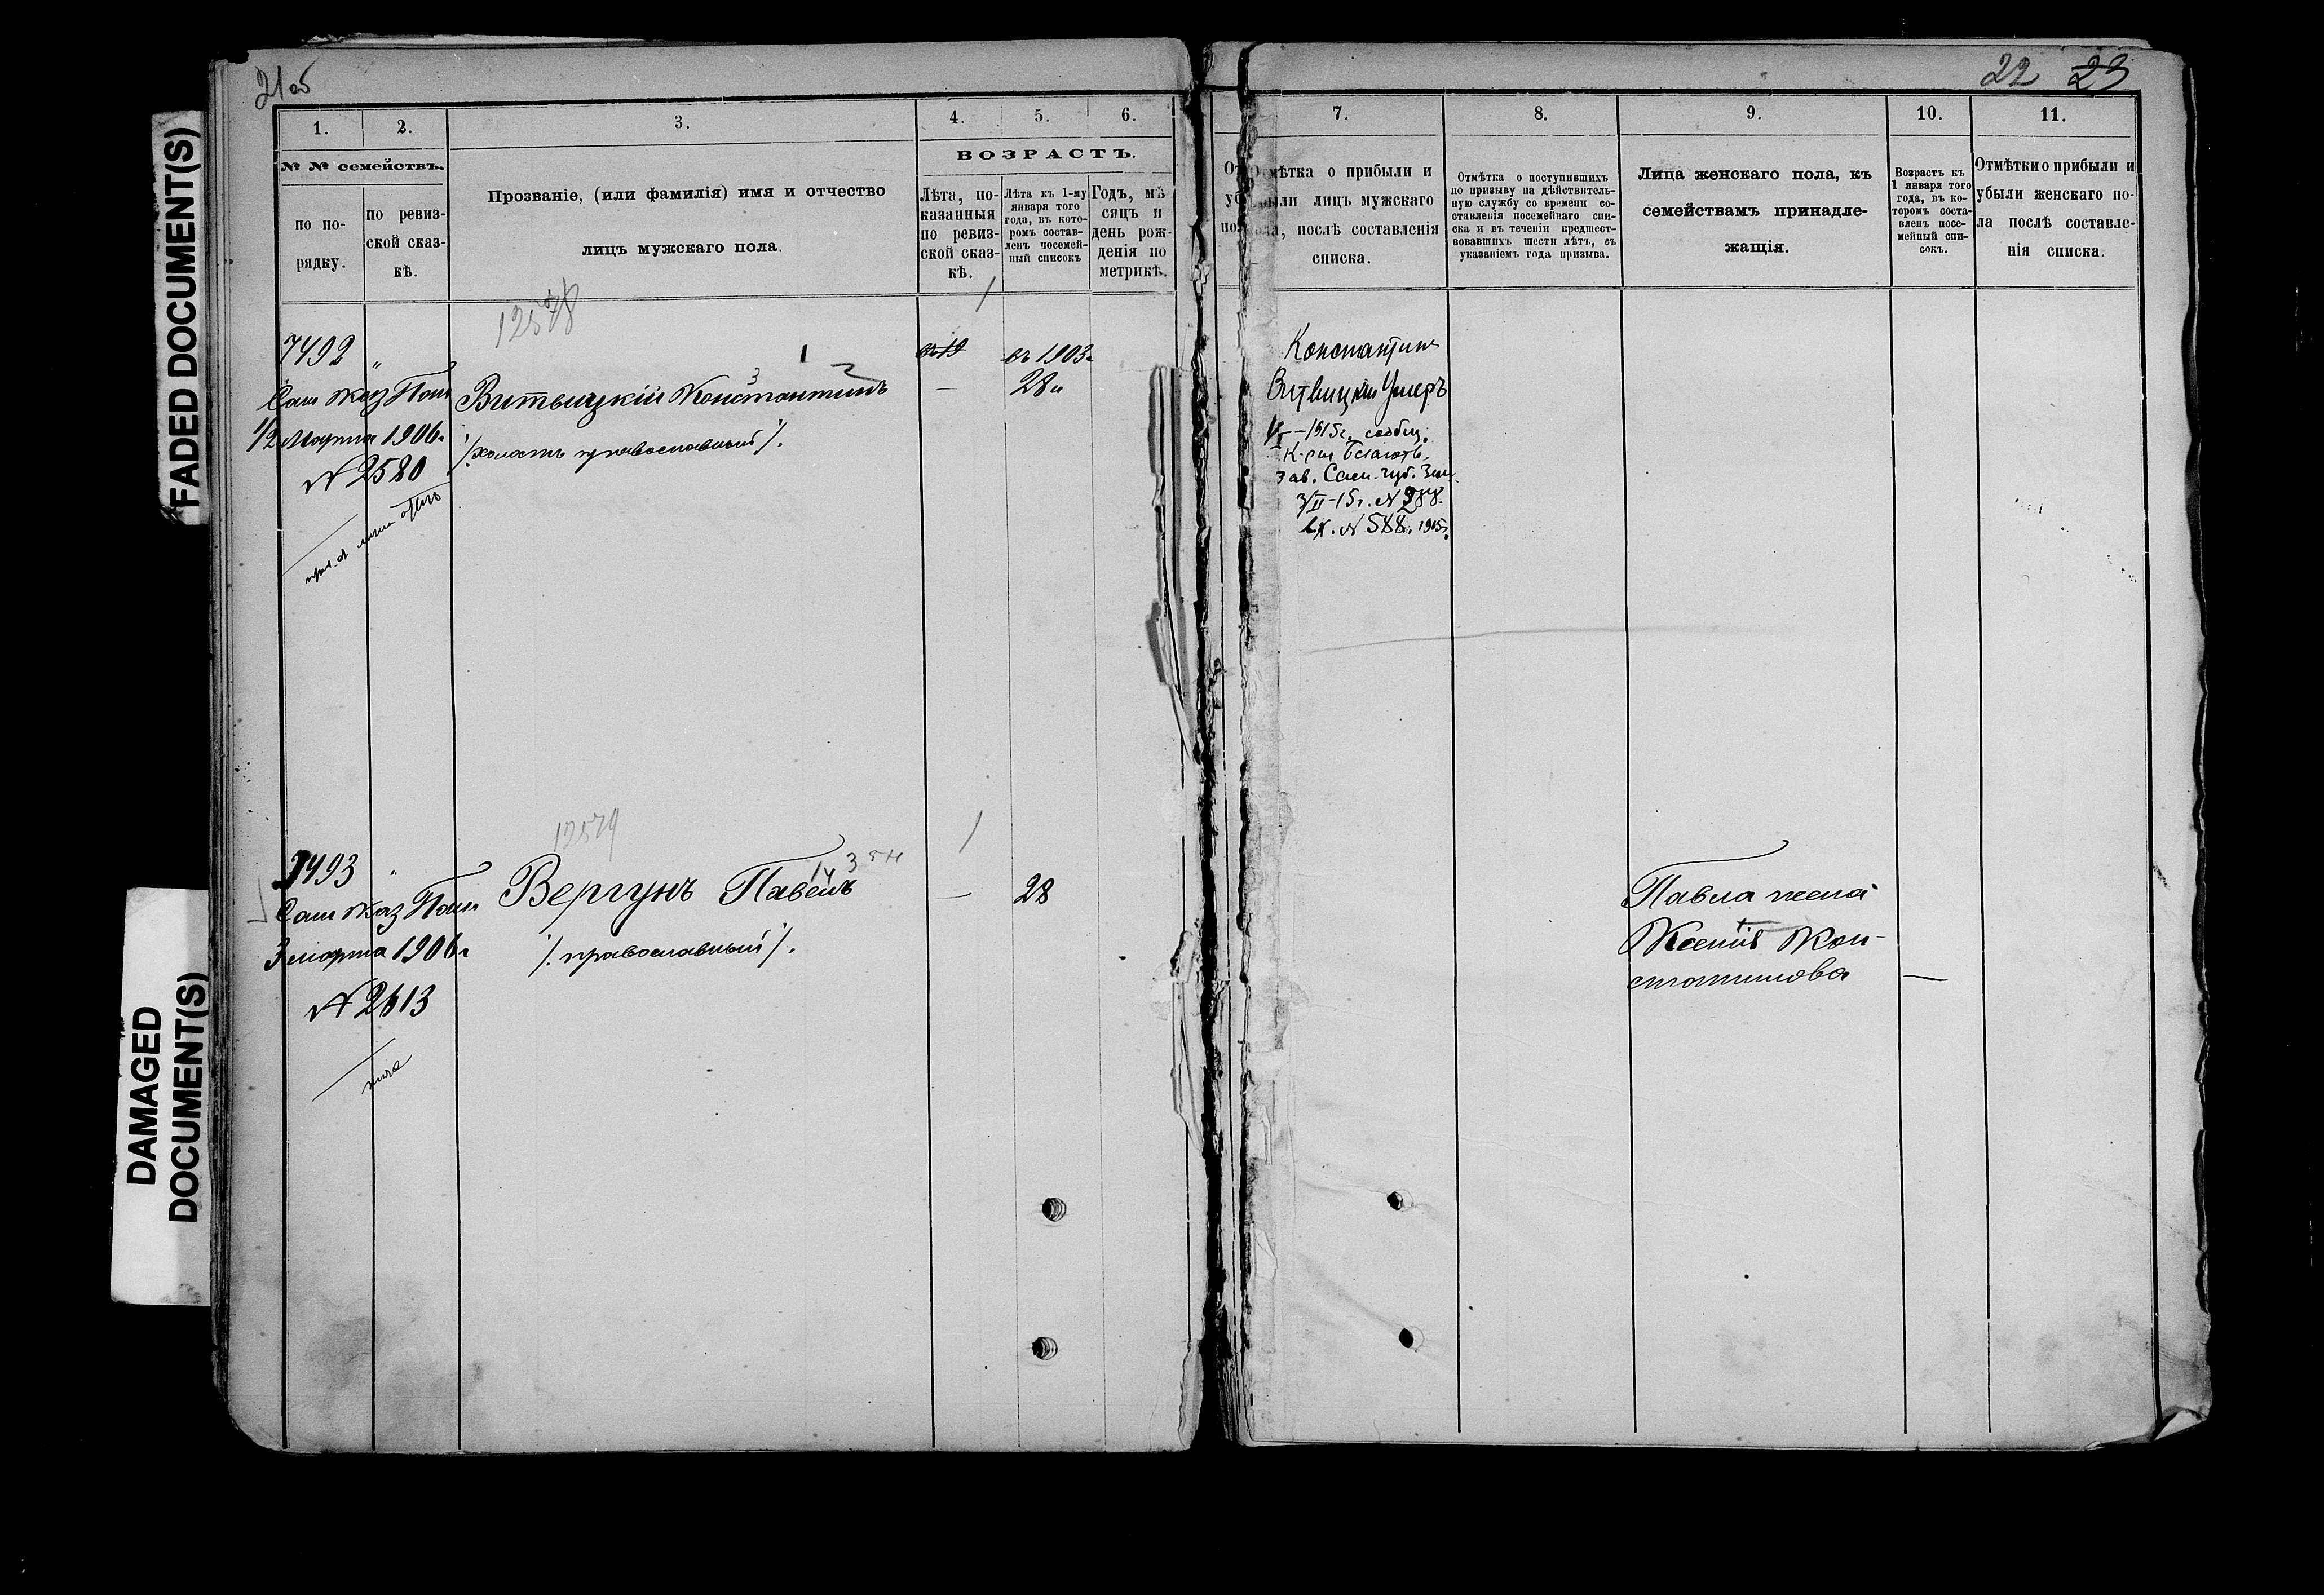 FADED DOCUMENT(S)
DAMAGED
DOCUMENT(S)
21об
1.
2.
3.
4.
5.
6.
№ № семействъ.
по по-
рядку.
по ревиз-
ской сказ-
кѣ.
Прозваніе, (или фамилія) имя и отчество
лицъ мужскаго пола.
ВОЗРАСТЪ.
Лѣта, по-
казанныя
по ревиз-
ской сказ-
кѣ.
Лѣта къ 1-му
января того
года, въ кото-
ромъ состав-
ленъ посемей-
ный списокъ
Годъ, мѣ
сяцъ и
день рож-
денія по
метрикѣ.
12578
7492 "
въ 1903г
Каз Пал
Витвицкій Константинъ
— 28
1/2 Марта 1906г
/.холостъ православный/.
№ 2580
12579
7493 "
Каз Пал
Вергунъ Павелъ
— 28
3 марта 1906г
/.православный/.
№ 2613
22 23
7.
8.
9.
10.
11.
Отмѣтка о прибыли и
убыли лицъ мужскаго
пола, послѣ составленія
списка.
Отмѣтка о поступившихъ
по призыву на дѣйствитель-
ную службу со времени со-
ставленія посемейнаго спи-
ска и въ теченіи предшест-
вовавшихъ шести лѣтъ, съ
указаніемъ года призыва.
Лица женскаго пола, къ
семействамъ принадле-
жащія.
Возрастъ къ
1 января того
года, въ ко-
торомъ соста-
вленъ посе-
мейный спи-
сокъ.
Отмѣтки о прибыли и
убыли женскаго по-
ла послѣ составле-
нія списка.
Константинъ
Витвицкій Умеръ
1915г. сообщ.
зав. губ.
3/II-15г. №
вх. № 588. 1915г.
Павла жена
Ксенія Кон-
стантинова —